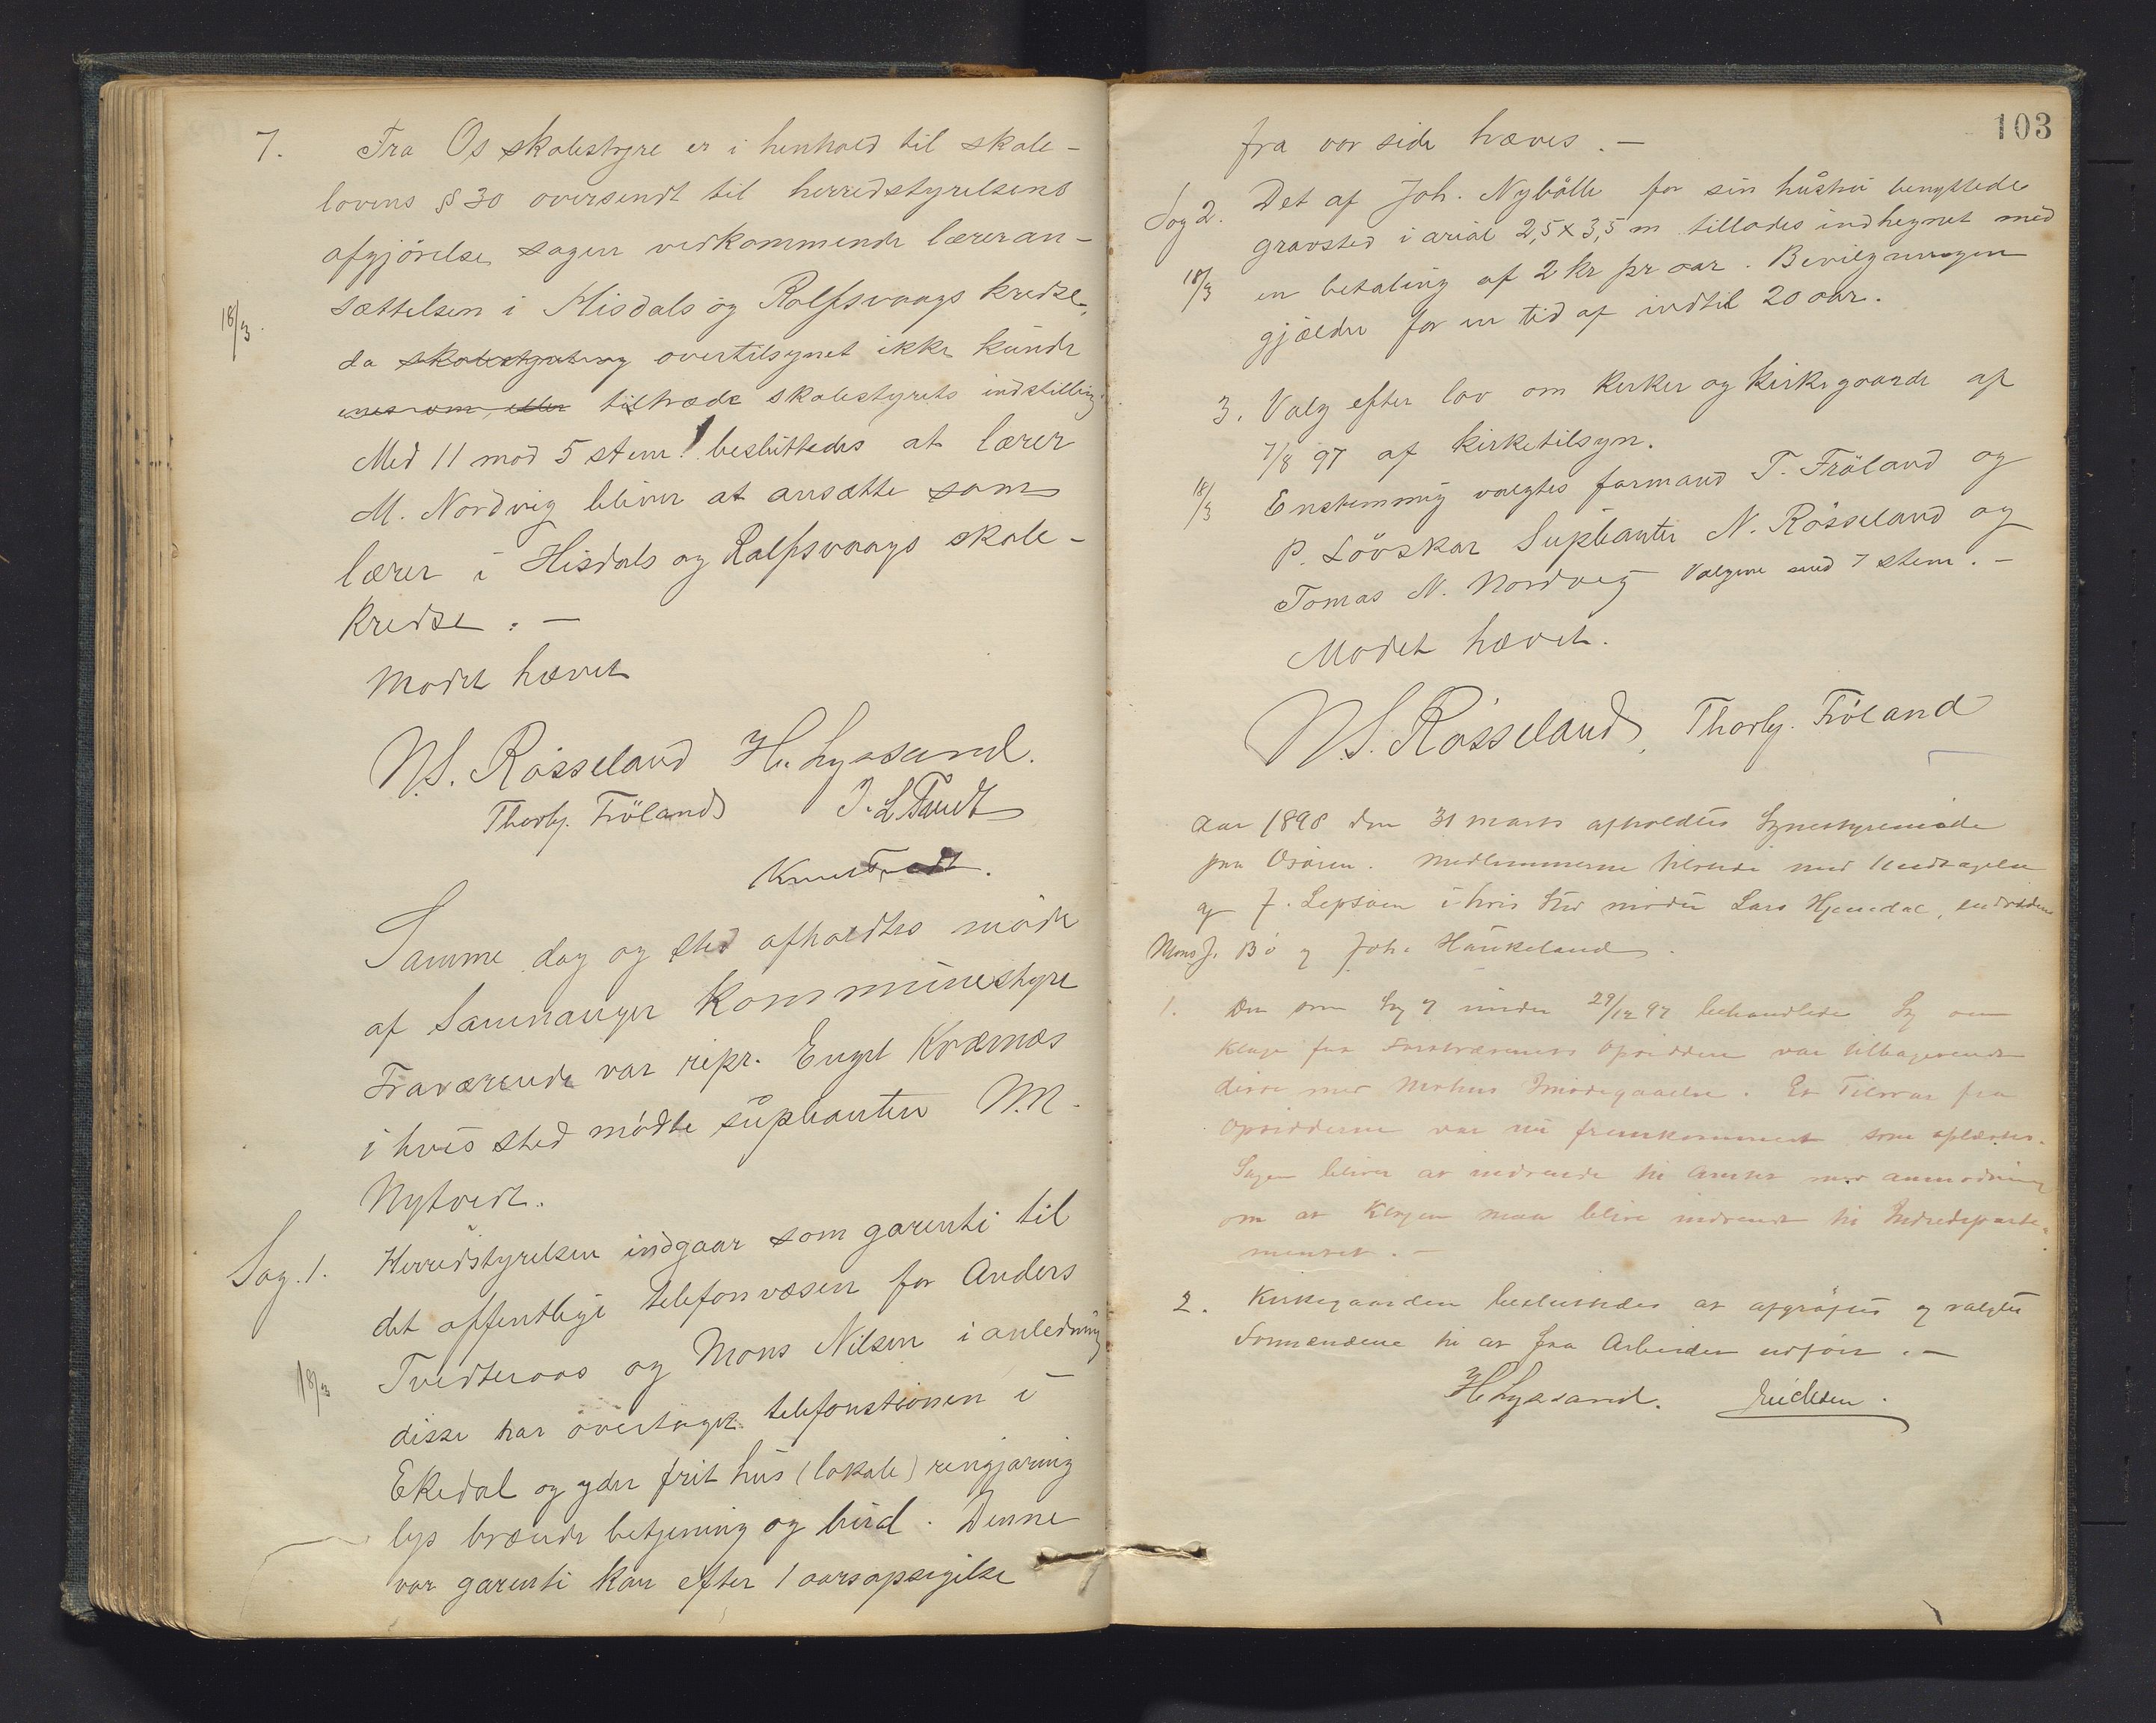 7. Fra Os skolestyre er i henhold til skole-
lovens § 30 oversendt til herredstyrelsens
afgjörelse sagen vedkommende læreran-
sættelsen i Hisdals og Rolfsvaags kredse,
18/3.
da skolestyret og overtilsynet ikke kunde
enes om eller tiltræde skolestyrets indstilling
Med 11 mod 5 stem. besluttedes at lærer
M. Nordvig bliver at ansætte som
lærer i Hisdals og Rolfsvaags skole-
kredse. —
Mödet hævet
N.S. Rösseland H. Lyssand.
Thorbj. Fröland J. L. Tvedt
Knut Tvedt.
Samme dag og sted afholdtes möde
af Samnanger Kommunestyre
Fraværende var repr. Engel Kvernæs
i hvis sted mödte suplianten N.M.
Nytvedt.
Sag. 1. Herredstyrelsen indgaar som garenti til
det offentlige telefonvæsen for Anders
Tvedteraas og Mons Nilsen i anledning
18/3
disse har overtaget telefonstionen i
Ekedal og yder frit hus (lokale) rengjøring
lys brænde betjening og bud. Denne
vor garenti kan efter 1 aarsopsigelse
103
fra vor side hæves. —
Sag 2. Det af Joh. Nybölle for sin hustru benyttede
gravsted i arial 2,5 x 3,5 m tillades indhegnet med
18/3 en betaling af 2 kr pr aar. Bevilgningen
gjælder for en tid af indtil 20 aar.
3. Valg efter lov om kirker og kirkegaarde af
7/8 97 af kirketilsyn.
18/3 Enstemmig valgtes formand T. Fröland og
P. Lövskar Suplianter N. Rösseland og
Tomas N. Nordvig Valgene med 7 stem. —
Mödet hævet.
N.S. Rösseland, Thorbj. Fröland
Aar 1898 den 31 marts afholdtes
paa Osören. Medlemmerne tilstede med Undtagelse
af J. Lepsöen i hvis Sted mödte Lars Hjemdal, endvidere
Mons J. Bö og Joh. Haukeland.
1. Den som Sag 7 under 29/12 97 behandlede Sag om
Klage fra Forstvæsenets Opsiddere var tilbagesendt
disse med Imödegaaelse. Et Tilsvar fra
Opsidderne var nu fremkommet som oplæstes.
Sagen bliver at indsende til Amtet med anmodning
om at Klagen maa blive indsendt til Indredeparte-
mentet. —
2. Kirkegaarden besluttedes at afgröftes og valgtes
Formændene til at faa Arbeidet udfört. —
H. Lyssand. Erichsen.